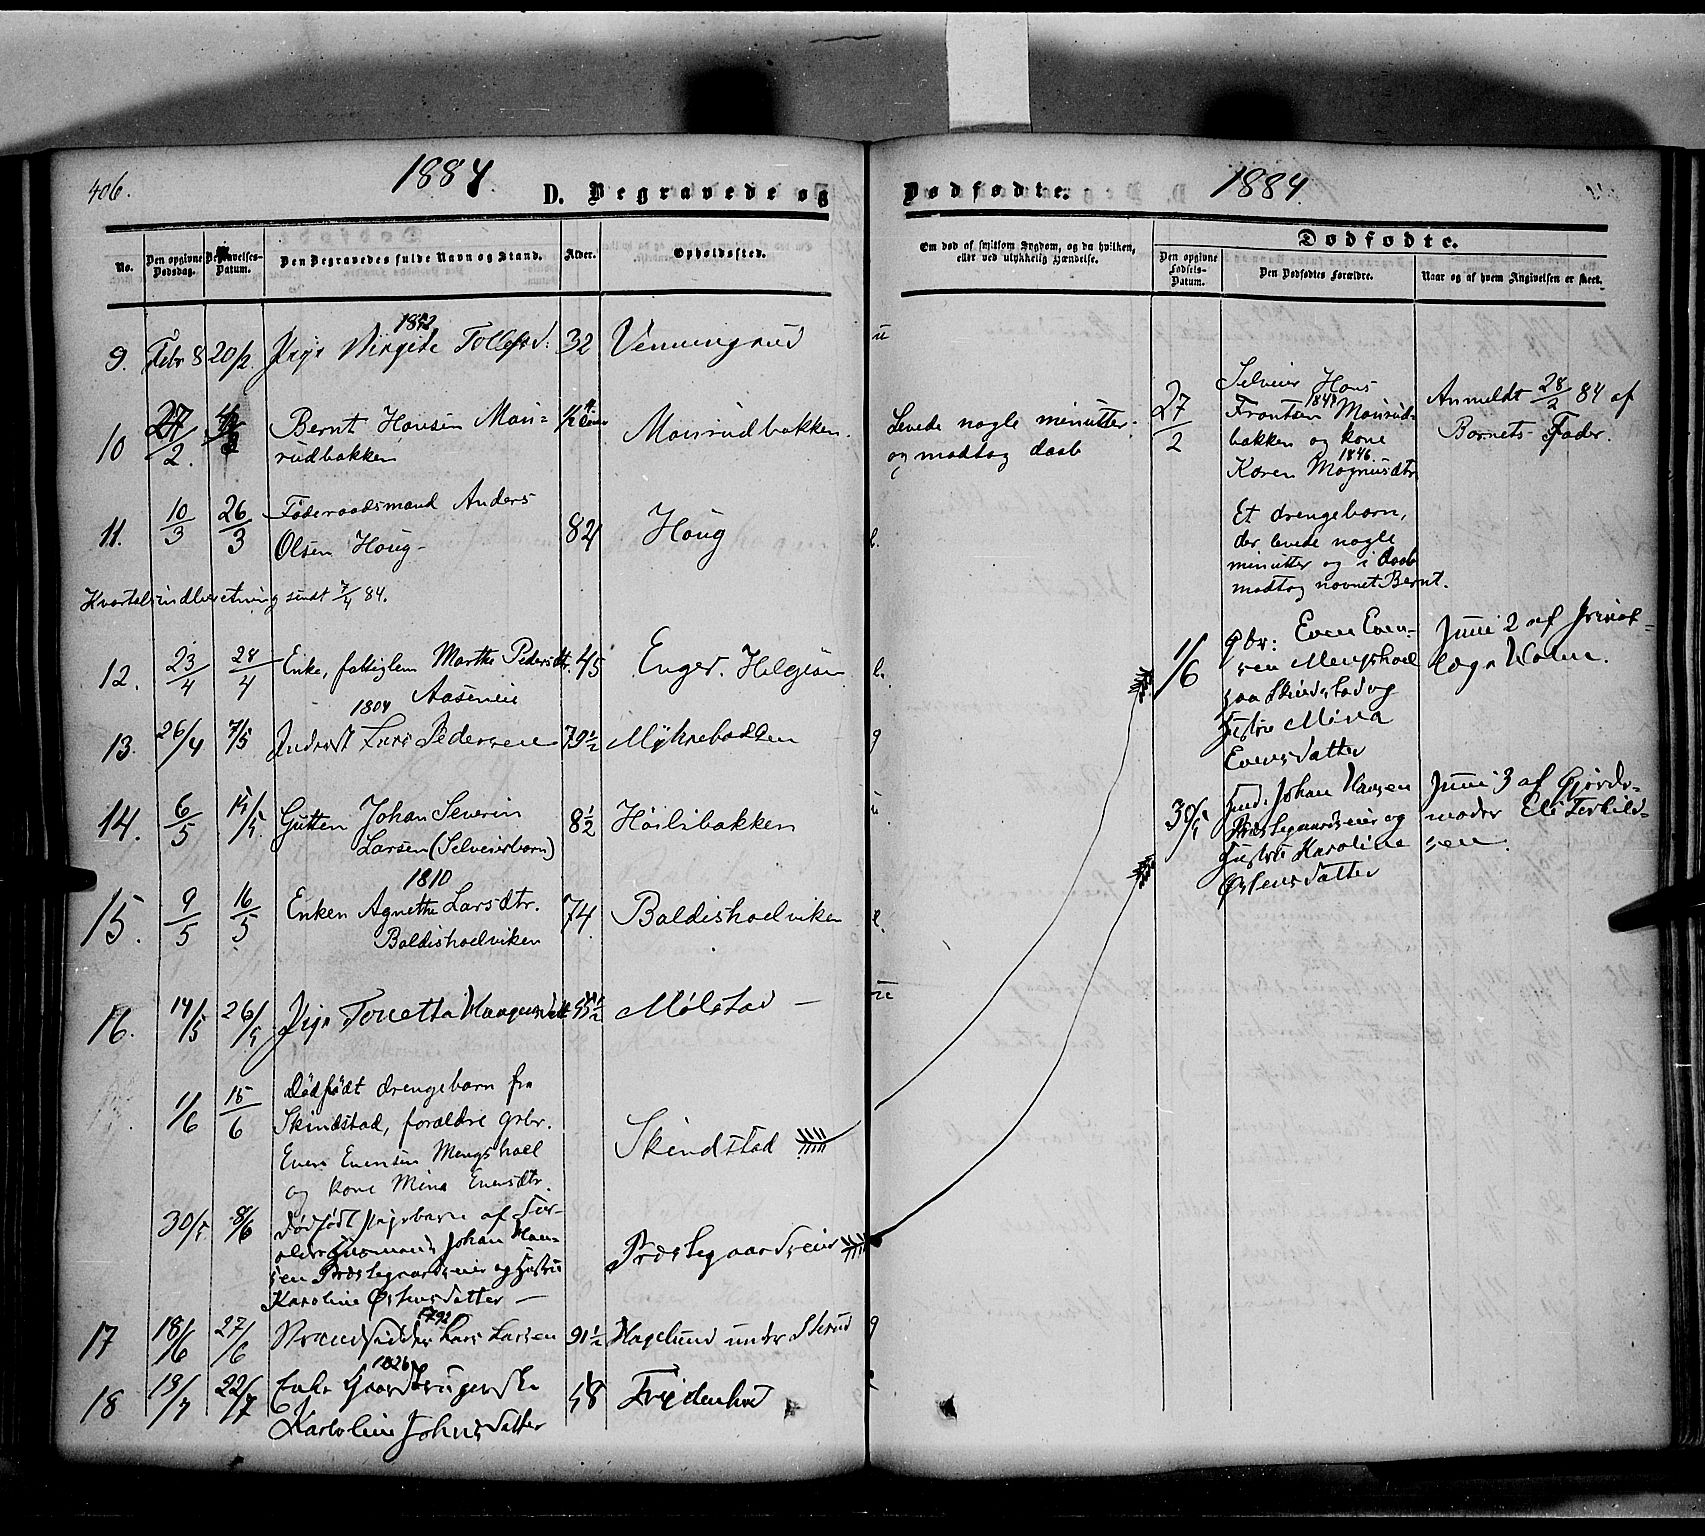 406.
1884
D. Begravede og
No.
Den opgivne Dødsdag.
Begravelses-Datum.
Den Begravedes fulde Navn og Stand.
Alder.
Opholdssted.
9. Febr 8 20/2. Pige Birgite Tollefsd: 32
1852
10 27/2. Bernt Hansen Mau-
rudbakken
Maurudbakken.
11. 10/3 26/3 Føderaadsmand Anders
Olsen Houg- 82 Houg
Kvartalsindberetning sendt 7/4 84.
12. 23/4 28/4 Enke, fattiglem Marthe Pedersdtr. 45
Aaseneie
13. 26/4 7/5 Indrost Lars Pedersen 79½
1804
14. 6/5 15/5. Gutten Johan Severin
Larsen (Selveierbarn) 8½ Höilibakken
15. 9/5 16/5 Enken Agnethe Larsdtr.
1810
Baldishoelviken 74. Baldishoelviken
16. 14/5 26/5 Pige Mølstad –
1/6 15/6 Dödfödt drengebarn fra
Skindstad, forældre grbr.
Even Evensen Mengshoel
og kone Mina Evensdtr.
Skindstad
30/5 8/6 Dødfødt Pigebarn af For-
ældre Husmand Johan Han-
sen Præstegaardseier og Hustru
Karoline Østensdatter –
Præstegaardseier
17 18/6 27/6 Lars Larsen 91½ Hagelund under Skrud
1792
18 19/7 22/7 Enke
1826
Karoline Johnsdatter 58 Frydenlund
Dødfødte.
1884.
Om død af smitsom Sygdom, og da hvilken,
eller ved ulykkelig Hændelse.
Dødfødte.
Den opgivne Fødsels-Datum.
Den Dødfødtes Forældre.
Naar og af hvem Angivelsen er skeet.
Levede nogle minutter
og modtog daab
27/2
Selveier Hans
Frantsen Maurud-
1849
bakken og kone
Karen Magnusdtr
1846
Anmeldt 28/2 84 af
Barnets Fader.
Et drengebarn,
der levede nogle
minutter og i daab
modtog navnet Bernt.
1/6
Gbr: Even Even-
sen Mengshoel
paa Skindstad og
Hustru Mina
Evensdatter
Juni 2 af Privat-
læge Holm.
30/5
Husm. Johan Hansen
Præstegaardseier og
Hustru Karoline
Østensdatter
Juni 3 af Gjorde-
moder Eli Terkild-
sen.